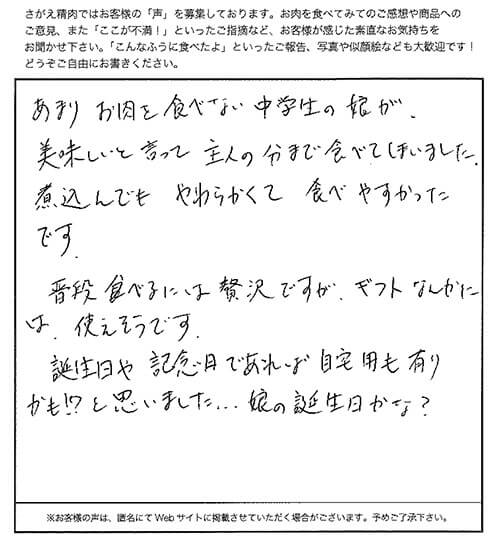 さがえ精肉ではお客様の「声」を募集しております。お肉を食べてみてのご感想や商品への
ご意見、また「ここが不満！」といったご指摘など、お客様が感じた素直なお気持ちを
お聞かせ下さい。「こんなふうに食べたよ」といったご報告、写真や似顔絵なども大歓迎です！
どうぞご自由にお書きください。
あまり お肉を食べない中学生の娘が、
美味しいと言って 主人の分まで食べてしまいました。
煮込んでも やわらかくて 食べやすかった
です。
普段食べるには贅沢ですが、ギフトなんかに
は、使えそうです。
誕生日や 記念日であれば 自宅用も有り
かも!? と思いました... 娘の誕生日かな？
※お客様の声は、匿名にてWebサイトに掲載させていただく場合がございます。予めご了承下さい。